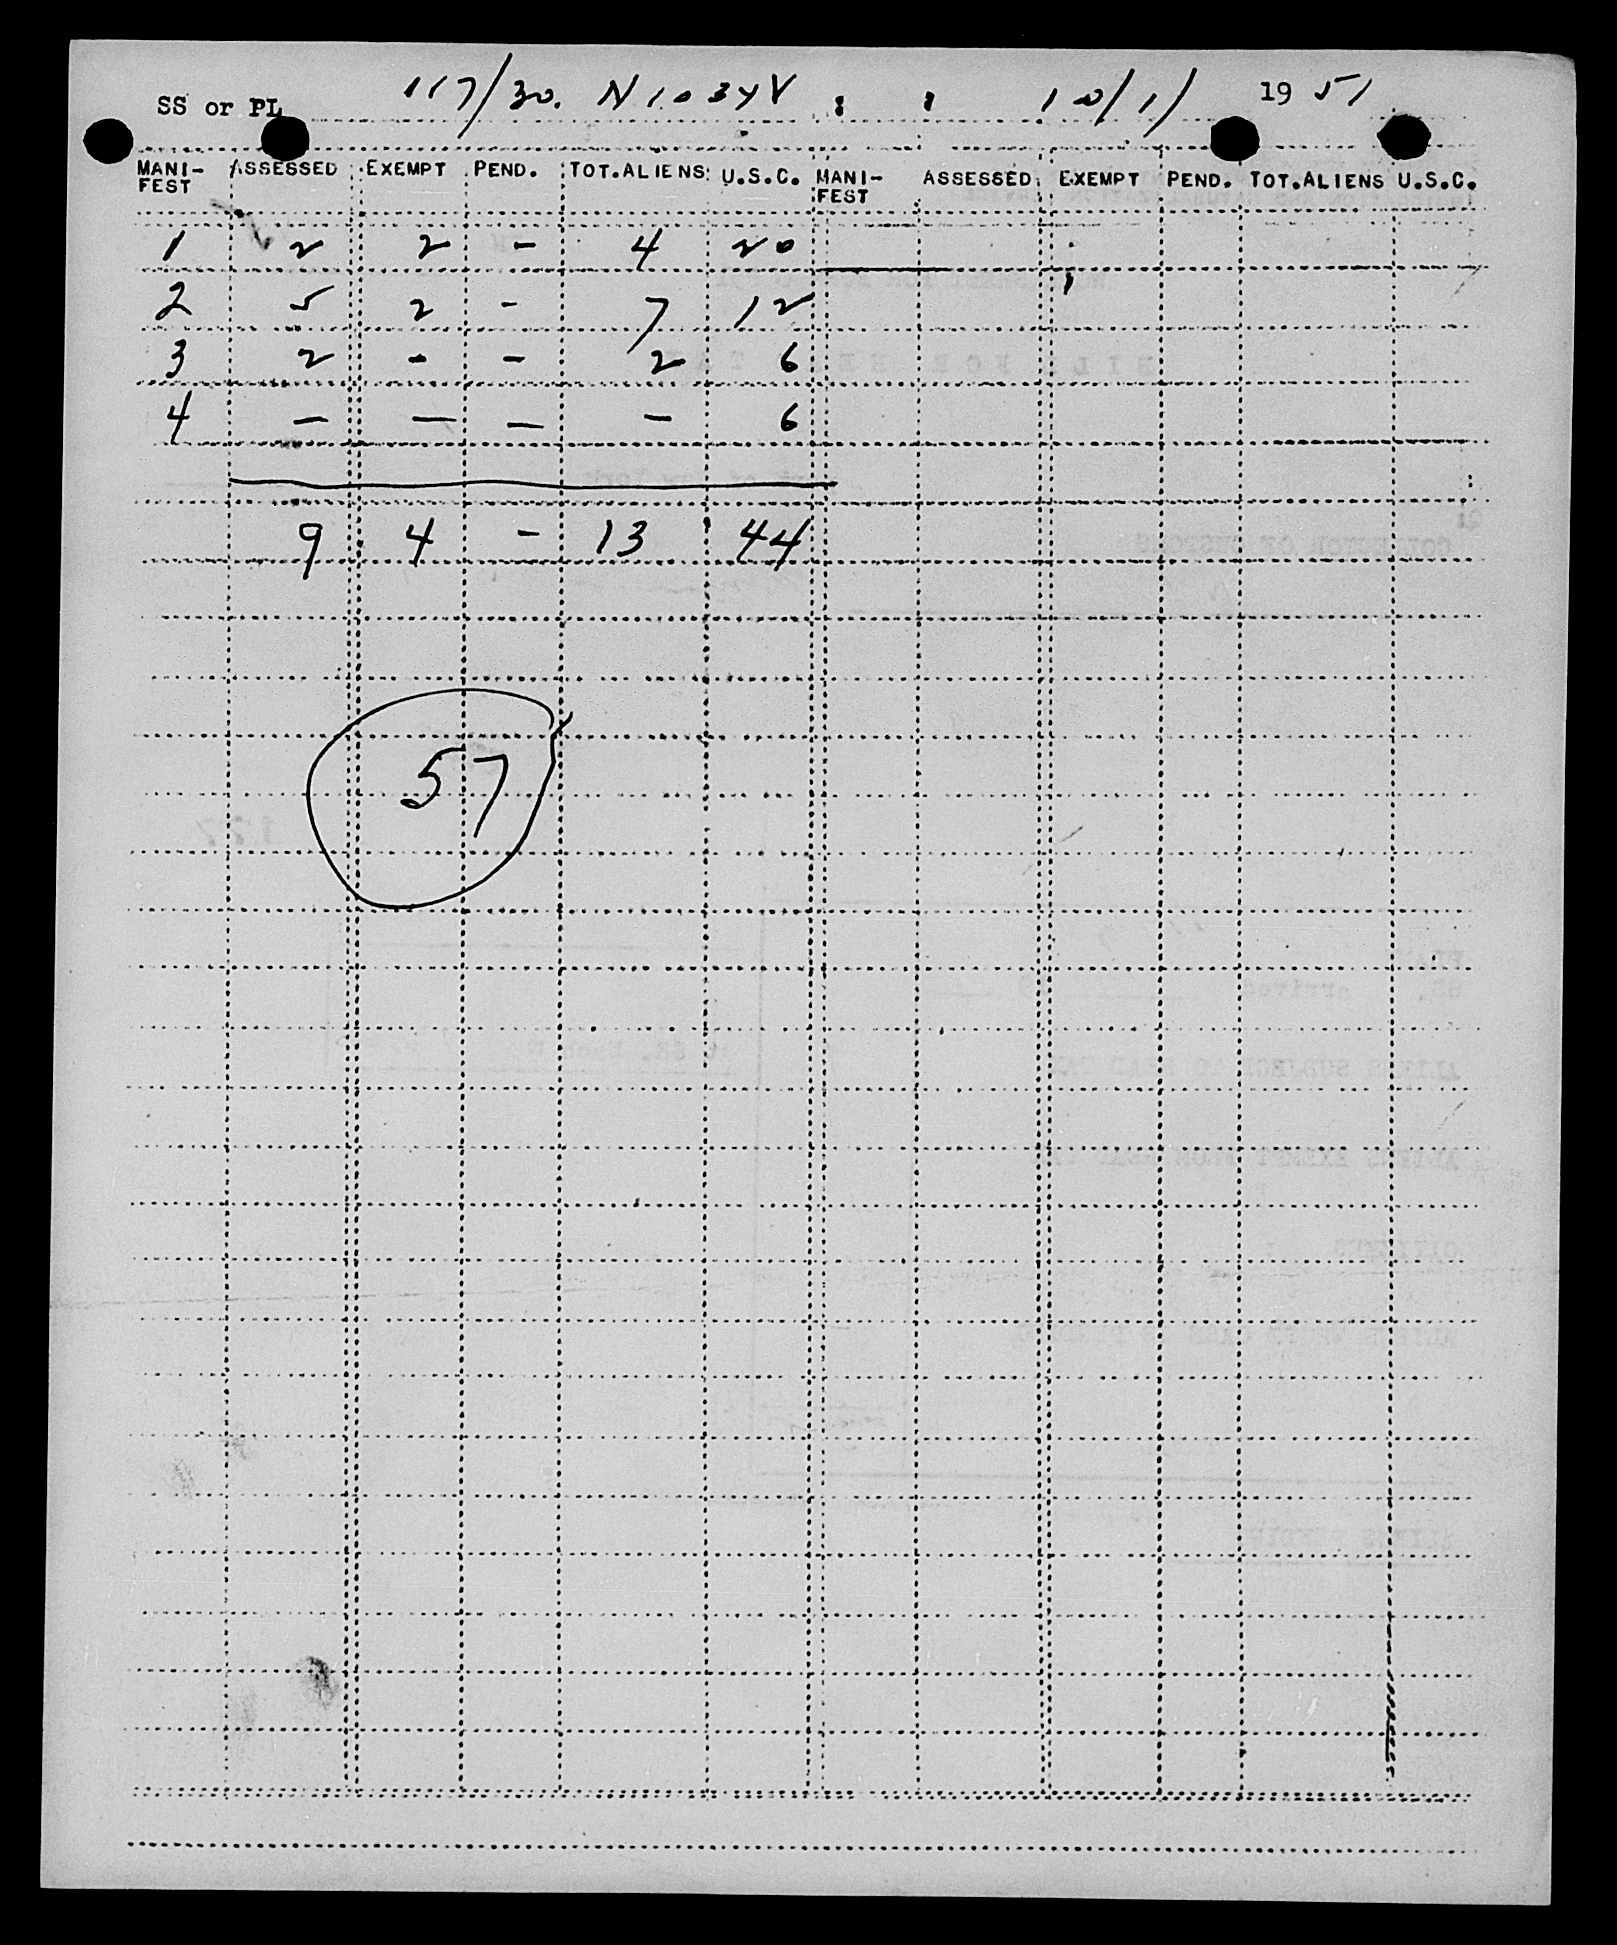 SS or PL 117/30. N1034V : : 10/1/ 1951
MANI-FEST ASSESSED EXEMPT PEND. TOT.ALIENS U.S.C. MANI-FEST ASSESSED EXEMPT PEND. TOT.ALIENS U.S.C.
1 2 2 - 4 20
2 5 2 - 7 12
3 2 - - 2 6
4 - - - - 6
9 4 - 13 44
57